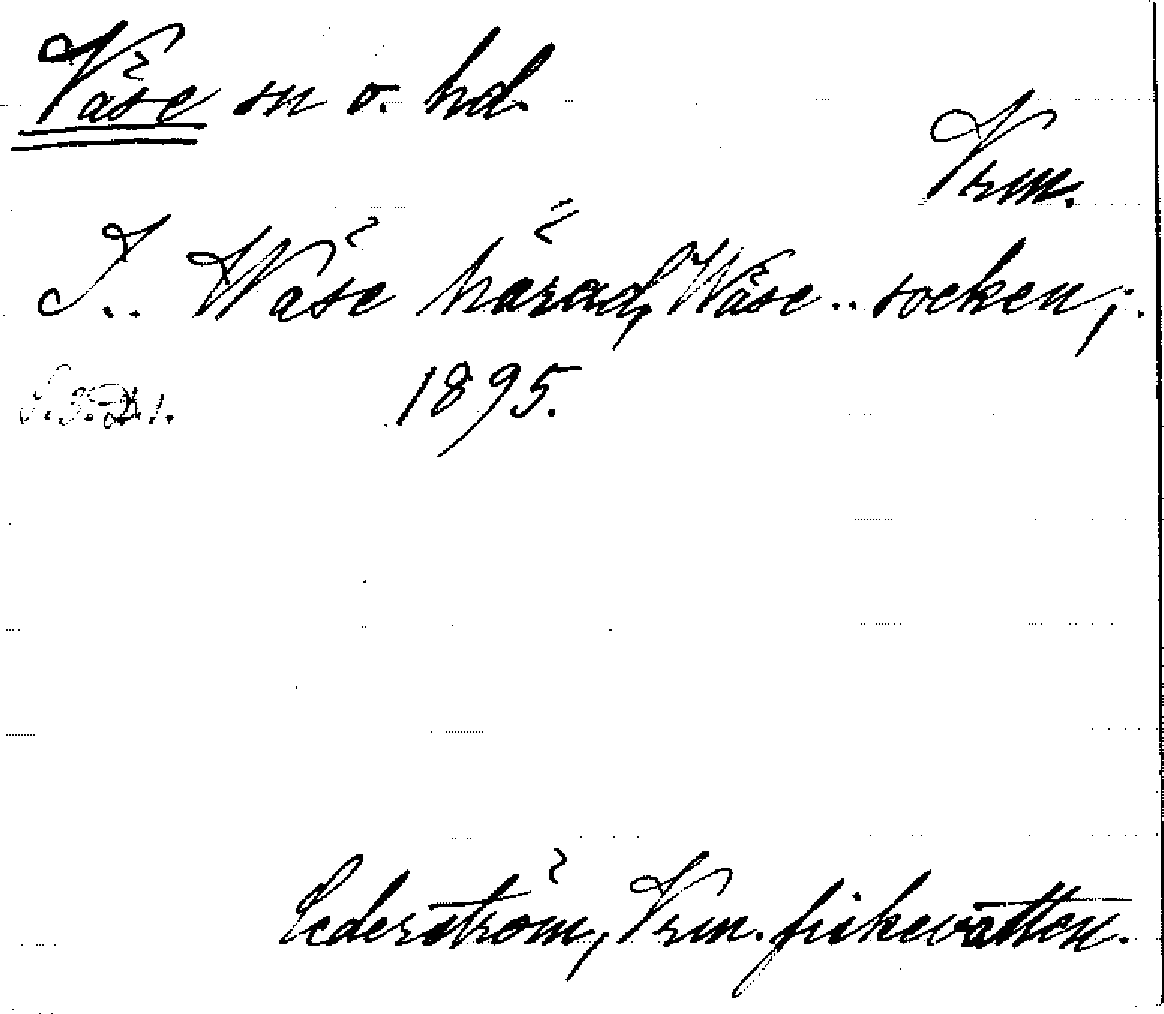 Väse sn o. hd.
Vrm.
I.. Wäse härad, Wäse.. socken;.
1895.
Cederström, Vrm. fiskevatten.